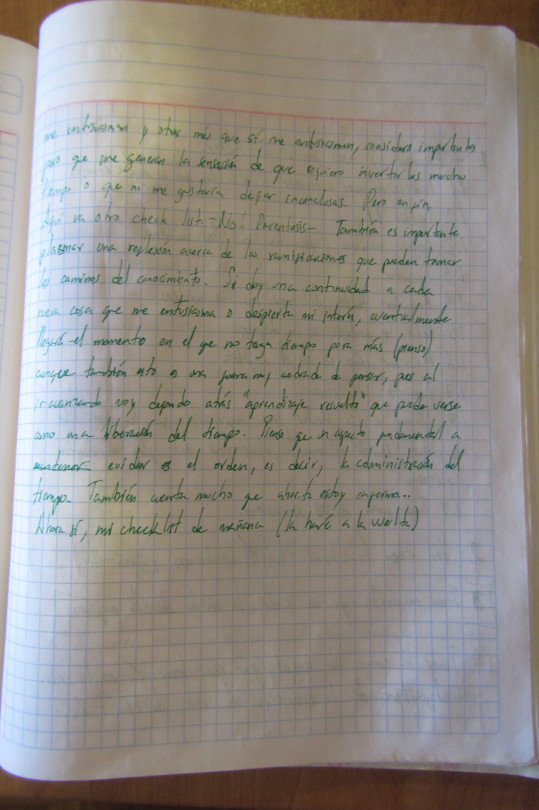 me entusiasman y otras más que sí me entusiasman, considero importante
pero que me generan la sensación de que requiero invertirles mucho
tiempo o que no me gustaría dejar inconclusas. Pero en fin,
aquí va otro check list. -No! Parentesis- También es importante
plasmar una reflexión acerca de las ramificaciones que pueden tomar
los caminos del conocimiento. Si doy una continuidad a cada
nueva cosa que me entusiasma o despierta mi interés, eventualmente
llegará el momento en el que no tenga tiempo para más (pienso)
aunque también esto es una manera muy cuadrada de pensar, pues al
ir avanzando voy dejando atrás "aprendizaje resuelto" que puede verse
como una liberación del tiempo. Pienso que un aspecto fundamental a
cuidar es el orden, es decir, la administración del
tiempo. También cuenta mucho que ahorita estoy enferma..
Ahora sí, mi checklist de mañana (la haré a la vuelta)